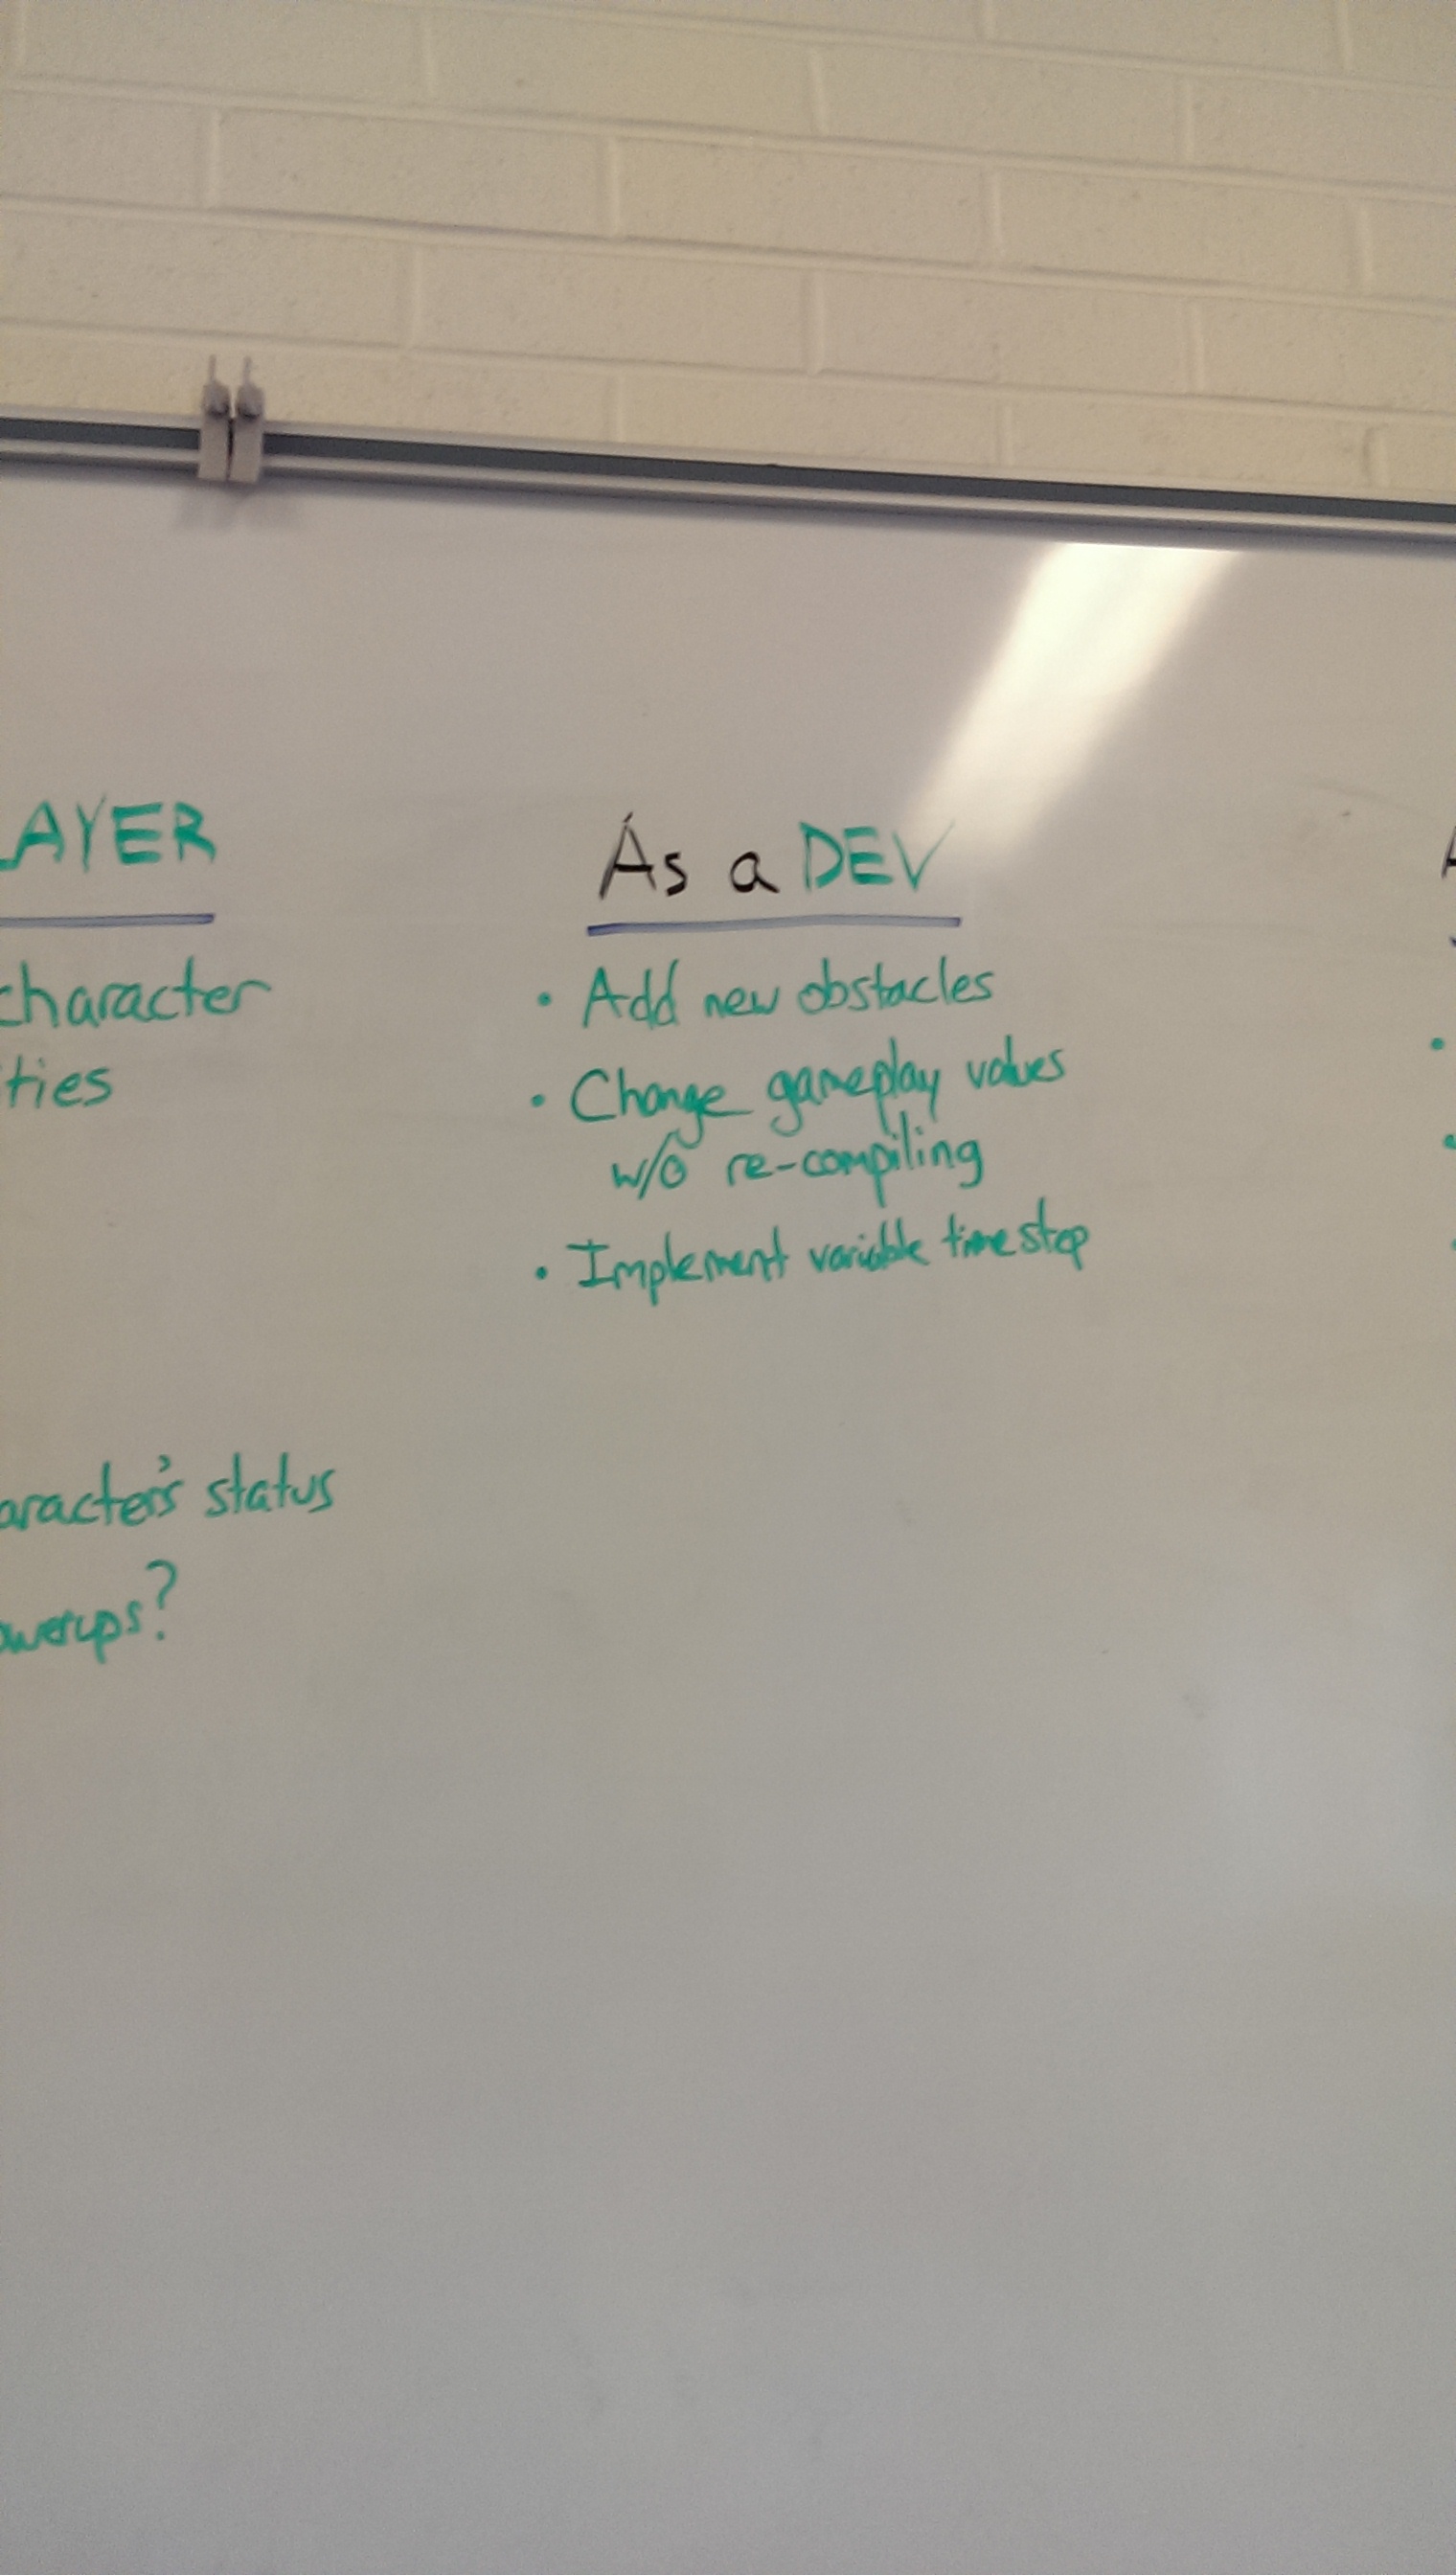 LAYER
character
ties
aracter's status
owerups?
As a DEV
• Add new obstacles
• Change gameplay values
w/o re-compiling
• Implement variable timestep